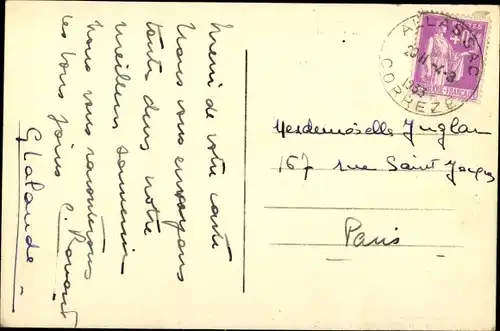 Merci de votre carte
Nous vous envoyons
toutes dans notre
meilleur souvenir
Nous vous raconterons
ces bons jours
ALLASSAC
CORREZE
1933
Mesdemoiselle Juglar
167 rue Saint Jacques
Paris